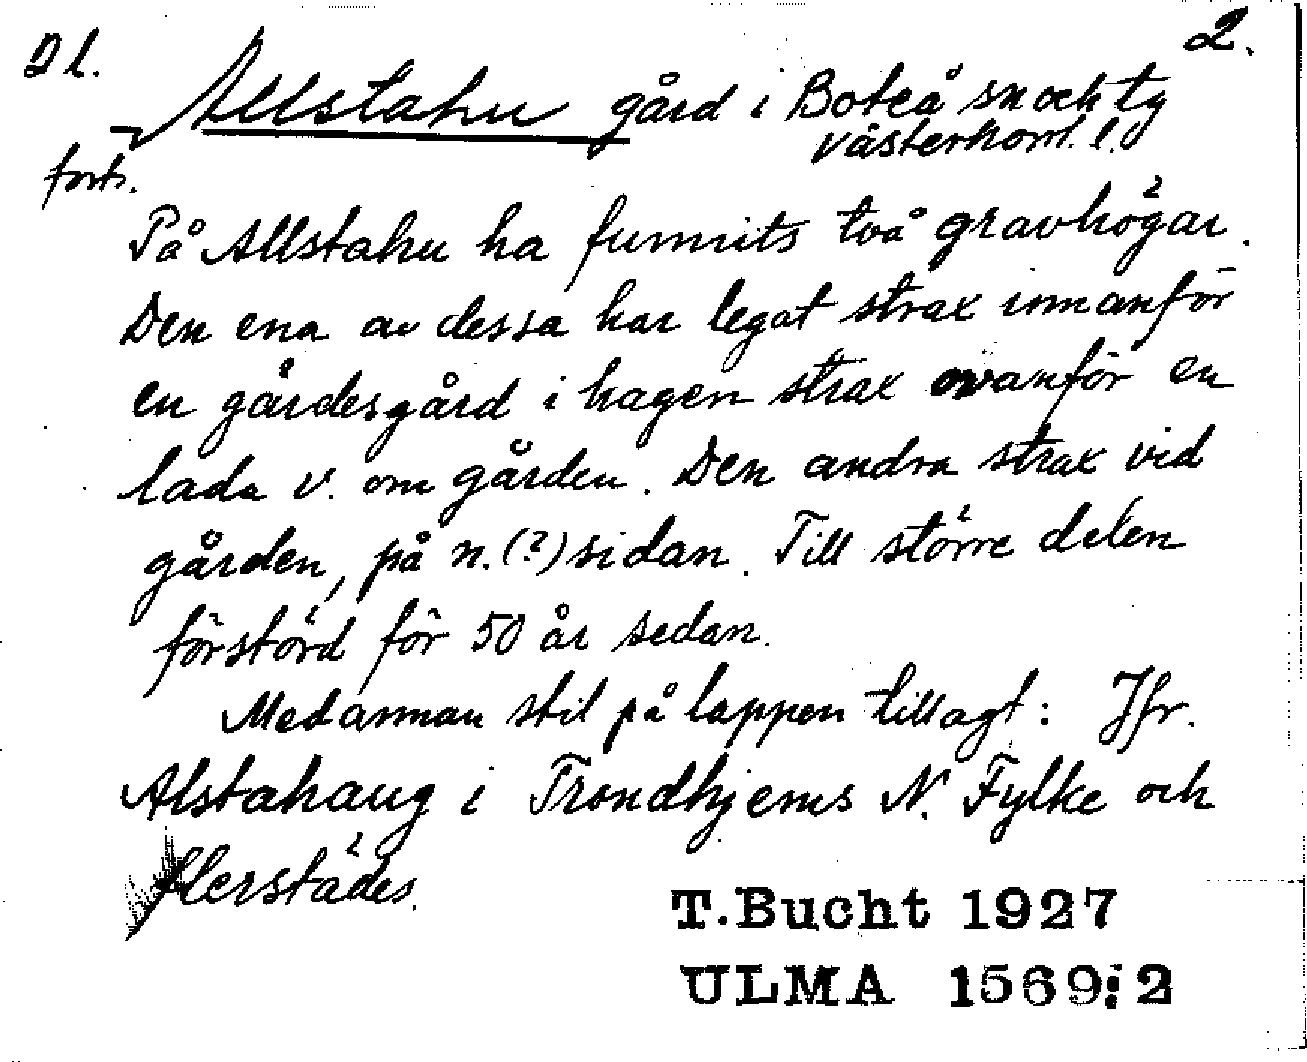 Dl. 2.
Allstahu gård i Boteå sn och tg
Västernorrl. l.
forts.
På Allstahu ha funnits två gravhögar.
Den ena av dessa har legat strax innanför
en gärdesgård i hagen strax ovanför en
lada v. om gården. Den andra strax vid
gården, på n.(?) sidan. Till större delen
förstörd för 50 år sedan.
Med annan stil på lappen tillagt: Jfr.
Alstahaug i Trondhjems N. Fylke och
flerstädes.
T.Bucht 1927
ULMA 1569:2